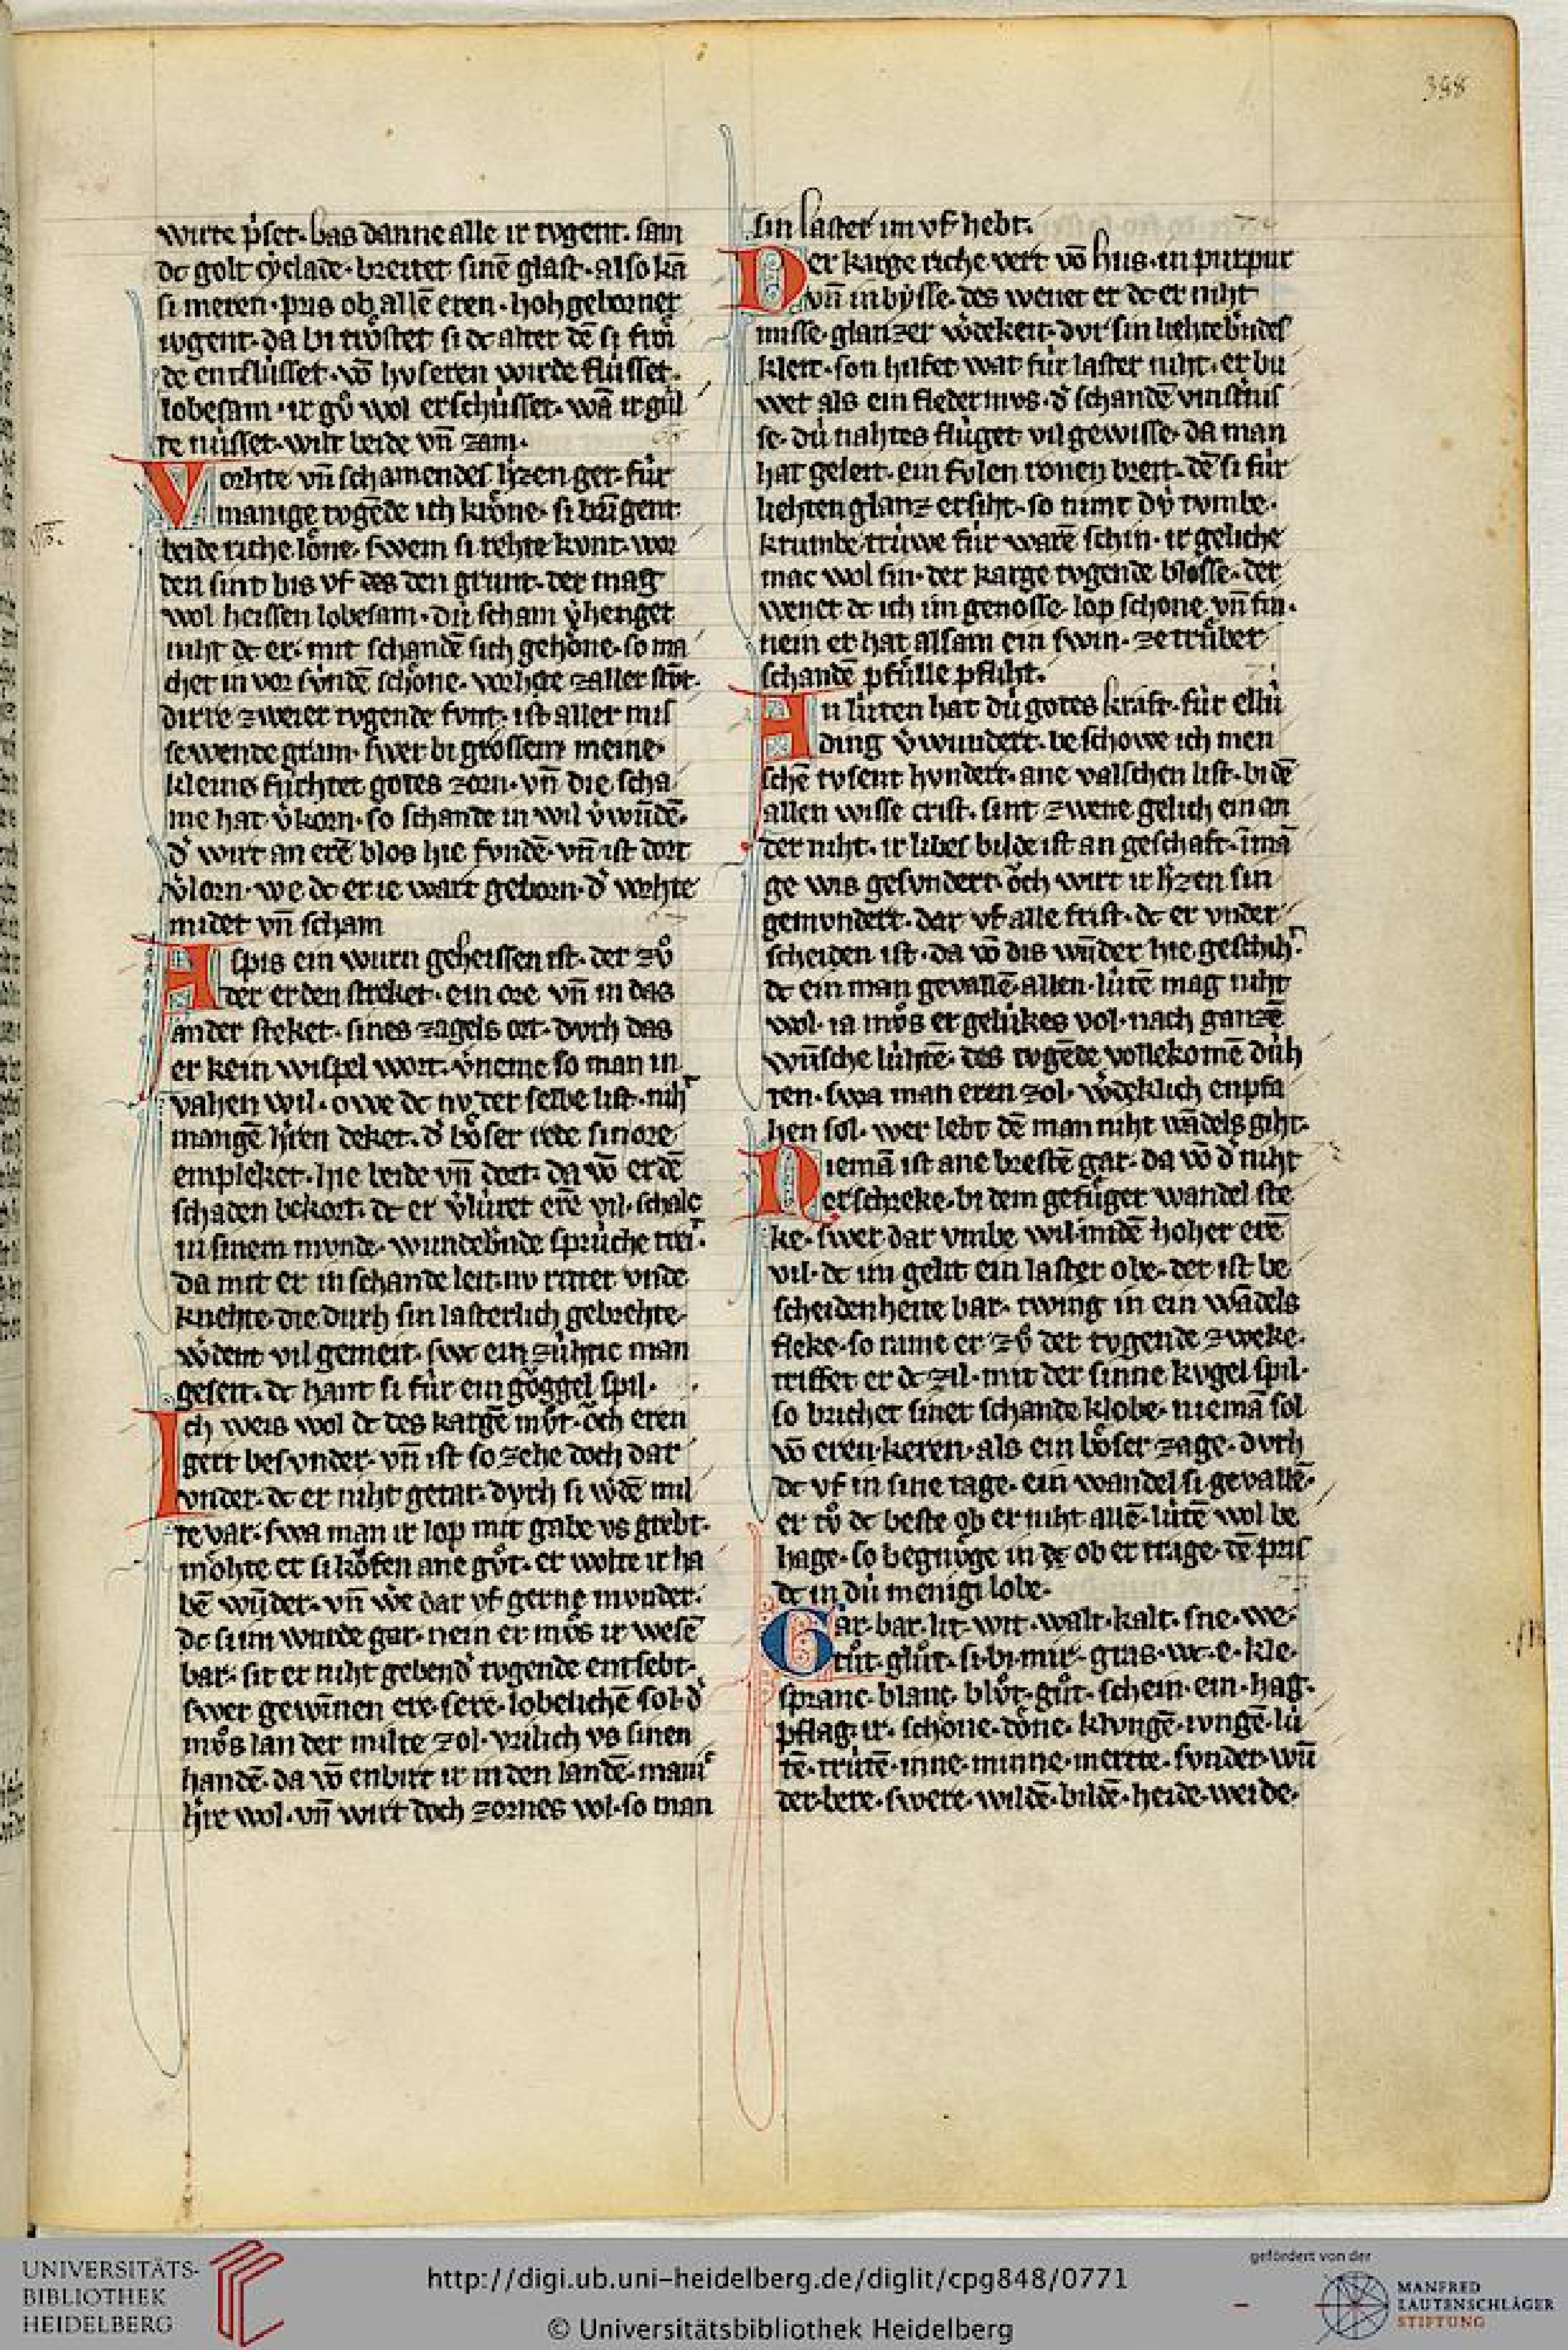 388
wirte p͛ſet· bas danne alle ir tvgent· ſam
dc golt cyclade· breitet ſinē glaſt· alſo kā
ſi meren· pris ob allē eren· hohgeborner
ivgent· da bi trǒſtet ſi dc alter dē ſi frǒi
de entſlu̍ſſet· vō hvſeren wirde flu̍ſſet·
lobeſam· ir gv̊ wol erſchu̍ſſet· wā ir gu̍l
te nu̍ſſet· wilt beide vn̄ zam·
Vorhte vn̄ ſchamendes h͛zen ger· fu̍r
manige tvgēde ich krǒne· ſi bri̅gent
beide riche lǒne· ſwem ſi rehte kvnt· wor
den ſint bis vf des den grunt· der mag
wol heiſſen lobeſam· du̍ ſcham v͛henget
niht dc er mit ſchandē ſich gehǒne· ſo ma
chet in vor ſv̍ndē ſchǒne· vorhte zaller ſtvt·
dirre zweier tvgende fvnt· iſt aller miſ
ſewende gram· ſwer bi groſſem meine
kleine fu̍rhtet gotes zorn· vn̄ die ſcha
me hat v͛korn· ſo ſchande in wil v͛wu̅dē·
d͛ wirt an erē blos hie fvndē· vn̄ iſt dort
v͛lorn· we dc er ie wart geborn· d͛ vorhte
midet vn̄ ſcham
Aſpis ein wurn geheiſſen iſt· der zv̊
der erden ſtreket· ein ore vn̄ in das
ander ſteket· ſines zagels ort· dvrh das
er kein wiſpel wort· v͛neme ſo man in
vahen wil· owe dc nv der ſelbe liſt· niht
mangē h͛ren deket· d͛ bǒſer rede ſin ore
empleket· hie beide vn̄ dort· da vō er dē
ſchaden bekort· dc er v͛lu̍ret erē vil· ſchalc
in ſinem mvnde· wundēb͛nde ſpru̍che treit·
da mit er in ſchande leit· nv ritter vnde
knehte· die durh ſin laſterlich gebrehte·
w͛dent vil gemeit· ſwc ein zu̍htic man
geſeit· dc hant ſi fu̍r ein gǒggel ſpil·
Ich weis wol dc des kargē mv̊t· ǒch eren
gert beſvnder· vn̄ iſt ſo zehe doch dar
vnder· dc er niht getar· dvrh ſi w͛dē mil
te var· ſwa man ir lop mit gabe vs grebt·
mǒhte er ſi kǒfen ane gv̊t· er wolte ir ha
bē wu̅der· vn̄ we dar vf gerne mvnder·
dc ſi im wurde gar· nein er mv̊s ir weſē
bar· ſit er niht gebend͛ tvgende entſebt·
ſwer gewinnen ere· ſere· lobelichē ſol· d͛
mv̊s lan der milte zol· vrilich vs ſinen
handē· da vō enbirt ir in den landē· manic
h͛re wol· vn̄ wirt doch zornes vol· ſo man
ſin laſter im vf hebt·
Der karge riche vert vō hus· in purpur
vn̄ in byſſe· des wenet er dc er niht
miſſe· glanzer w͛dekeit· dvr ſin liehteb͛ndes
kleit· ſon hilfet wat fu̍r laſter niht· er bu
wet als ein fledermvs· d͛ ſchandē vinſtnis
ſe· du̍ nahtes flu̍get vil gewiſſe· da man
hat geleit· ein fvlen ronen breit· dē ſi fu̍r
liehten glanz erſiht· ſo nimt dv̍ tvmbe·
krumbe tru̍we fu̍r warē ſchin· ir geliche
mac wol ſin· der karge tvgende bloſſe· der
wenet dc ich im genoſſe· lop ſchone vn̄ fin·
nein er hat alſam ein ſwin· ze tru̍ber
ſchandē pfu̍lle pfliht·
An lu̍ten hat du̍ gotes kraft· fu̍r ellu̍
ding v͛wundert· beſchowe ich men
ſchē tvſent hvndert· ane valſchen liſt· bi dē
allen wiſſe criſt· ſint zwene gelich ein an
der niht· ir libes bilde iſt an geſchaft· i̅ mā
ge wis geſvndert· ǒch wirt ir h͛zen ſin
gemvndert· dar vf alle friſt· dc er vnder
ſcheiden iſt· da vō dis wu̅der hie geſchiht·
dc ein man gevallē· allen· lu̍tē mag niht
wol· ia mv̊s er gelu̍kes vol· nach ganzē
wu̅ſche lu̍htē· des tvgēde vollekomē du̍h
ten· ſwa man eren zol· w͛deklich enpfa
hen ſol· wer lebt dē man niht wādels giht·
Niemā iſt ane breſtē gar· da vō d͛ niht
erſchreke· bi dem gefu̍ger wandel ſte
ke· ſwer dar vmbe wil midē hoher erē
vil· dc im gelit ein laſter obe· der iſt be
ſcheidenheite bar· twing in ein wādels
fleke· ſo rume er zv̊ der tvgende zweke·
triffet er dc zil· mit der ſinne kvgel ſpil·
ſo brichet ſiner ſchande klobe· niemā ſol
vō eren· keren· als ein bǒſer zage· dvrh
dc vf in ſine tage· ein wandel ſi gevallē·
er tv̊ dc beſte ob er niht allē· lu̍tē wol be
hage· ſo begnv̊ge in dc ob er trage· dē pris
dc in du̍ menigi lobe·
Gar· bar· lit· wit· walt· kalt· ſne· we·
tu̍t· glu̍t· ſi· bi· mir· gras· wc· e· kle·
ſpranc· blanc· blv̊t· gv̊t· ſchein· ein· hag·
pflag· ir· ſchǒne· dǒne· klvngē· ivngē· lu̍
tē· tru̍tē· inne· minne· merte· ſvnder· wu̅
der· bere· ſwere· wildē· bildē· heide· weide·
UNIVERSITÄTS-
BIBLIOTHEK
HEIDELBERG
http://digi.ub.uni-heidelberg.de/diglit/cpg848/0771
© Universitätsbibliothek Heidelberg
gefördert von der
MANFRED
LAUTENSCHLÄGER
STIFTUNG